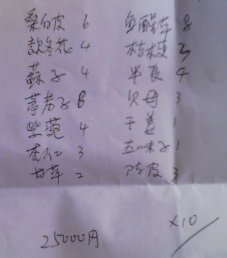 桑白皮 6 魚腥草 8
款冬花 4 桔梗 3
蘇子 4 半夏 4
葶藶子 6 貝母 3
紫菀 4 干姜 1
杏仁 3 五味子 1
甘草 2 陳皮 3
25000円 ×10